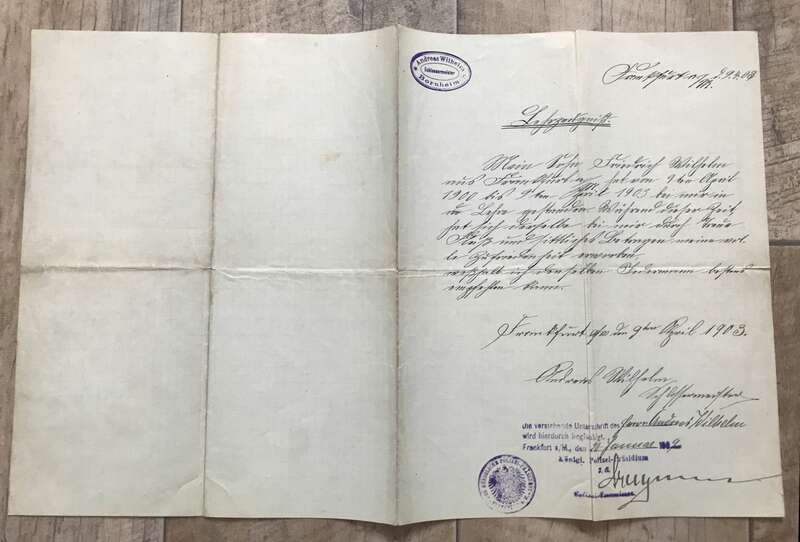 Andreas Wilhelm
Schlossermeister
Bornheim
Frankfurt a/M. 9.4.03
Lehrzeugniß.
Mein Sohn Friedrich Wilhelm
aus Frankfurt a/M hat vom 9ten April
1900 bis 9ten April 1903 bei mir in
der Lehre gestanden Während dieser Zeit
hat sich derselbe bei mir durch treue
Fleiß und sittliches Betragen meine vol
le Zufriedenheit erworben,
weßhalb ich denselben Jedermann bestens
empfehlen kann.
Frankfurt a/M den 9ten April 1903.
Andreas Wilhelm
Schlossermeister
Die vorstehende Unterschrift des Herrn Andreas Wilhelm
wird hierdurch beglaubigt.
Frankfurt a/M., den Januar
Königl. Polizei-Präsidium
I.A.